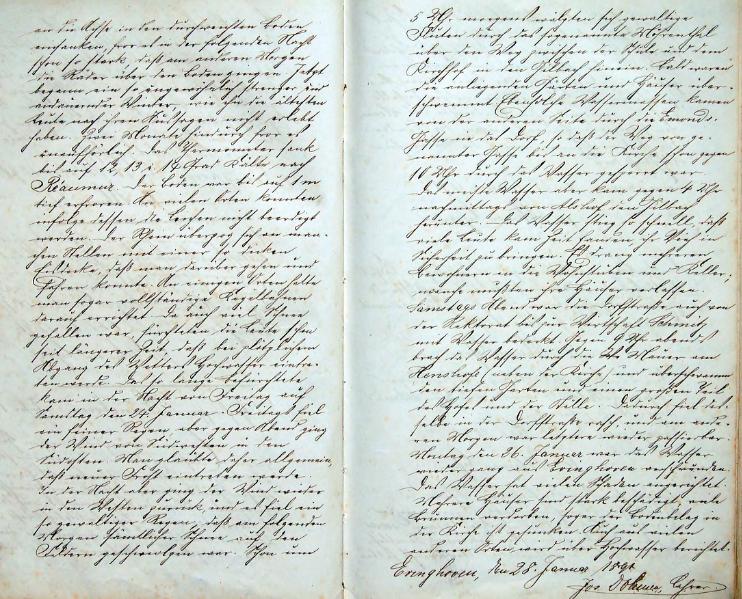 an die Achse in den durchweichten Boden
einsanken, fror es in der folgenden Nacht
schon so stark, daß am anderen Morgen
die Räder über den Boden gingen. Jetzt
begann ein so ungewöhnlich strenger und
andauernder Winter, wie ihn die ältesten
Leute nach ihren Aussagen nicht erlebt
haben. Zwei Monate hindurch fror es
unaufhörlich. Das Thermometer sank
bis auf 12, 13 u. 14 Grad Kälte nach
Reaumur. Der Boden war bis auf 1 m
tief erfroren. An vielen Orten konnten
infolge dessen die Leichen nicht beerdigt
werden. Der Rhein überzog sich an man-
chen Stellen mit einer so dicken
Eisdecke, daß man darüber gehen und
fahren konnte. An einigen Orten hatte
man sogar vollständige Kegelbahnen
darauf errichtet. Da auch viel Schnee
gefallen war, fürchteten die Leute schon
seit längerer Zeit, daß bei plötzlichem
Abgang des Wetters Hochwasser eintre-
ten werde. Das so lange befürchtete
kam in der Nacht von Freitag auf
Samstag den 24. Januar. Freitags fiel
ein feiner Regen, aber gegen Abend ging
der Wind von Südwesten in den
Südosten. Man glaubte daher allgemein,
daß neuer Frost eintreten werde.
In der Nacht aber ging der Wind wieder
in den Westen zurück und es fiel ein
so gewaltiger Regen, daß am folgenden
Morgen sämtlicher Schnee auf den
Feldern geschmolzen war. Schon um
5 Uhr morgens wälzten sich gewaltige
Fluten durch das sogenannte
über den Weg zwischen der Schule und dem
Kirchhof in den hinein. Bald waren
die anliegenden Gärten und Häuser über-
schwemmt. Ebensolche Wassermassen kamen
von der anderen Seite durch die
Gasse in das Dorf, so daß der Weg von ge-
nannter Gasse bis an die Kirche schon gegen
10 Uhr durch das Wasser gesperrt war.
Das meiste Wasser aber kam gegen 4 Uhr
nachmittags von
herunter. Das Wasser stieg so schnell, daß
viele Leute kaum Zeit fanden, ihr Vieh in
Sicherheit zu bringen. Es drang mehreren
Bewohnern in die Wohnstuben und Keller;
manche mußten ihre Häuser verlassen.
Samstags Abend war die Dorfstraße auch von
der Rektorat bis zur Wirtschaft Schmitz
mit Wasser bedeckt. Gegen 9 Uhr abends
brach das Wasser durch die Mauer am
(neben der Kirche) und überschwemmte
den tiefen Garten und einen großen Teil
des Hofes und der Ställe. Dadurch fiel das-
selbe in der Dorfstraße rasch, und am ande-
ren Morgen war letztere wieder passierbar.
Montag den 26. Januar war das Wasser
wieder ganz aus Evinghoven verschwunden.
Das Wasser hat vielen Schaden angerichtet.
Mehrere Häuser sind stark beschädigt, viele
Brunnen verdorben, sogar der Bodenbelag in
der Kirche ist gesunken. Auch aus vielen
anderen Orten wird über Hochwasser berichtet.
Evinghoven, den 28. Januar 1891
Jos. Lehrer